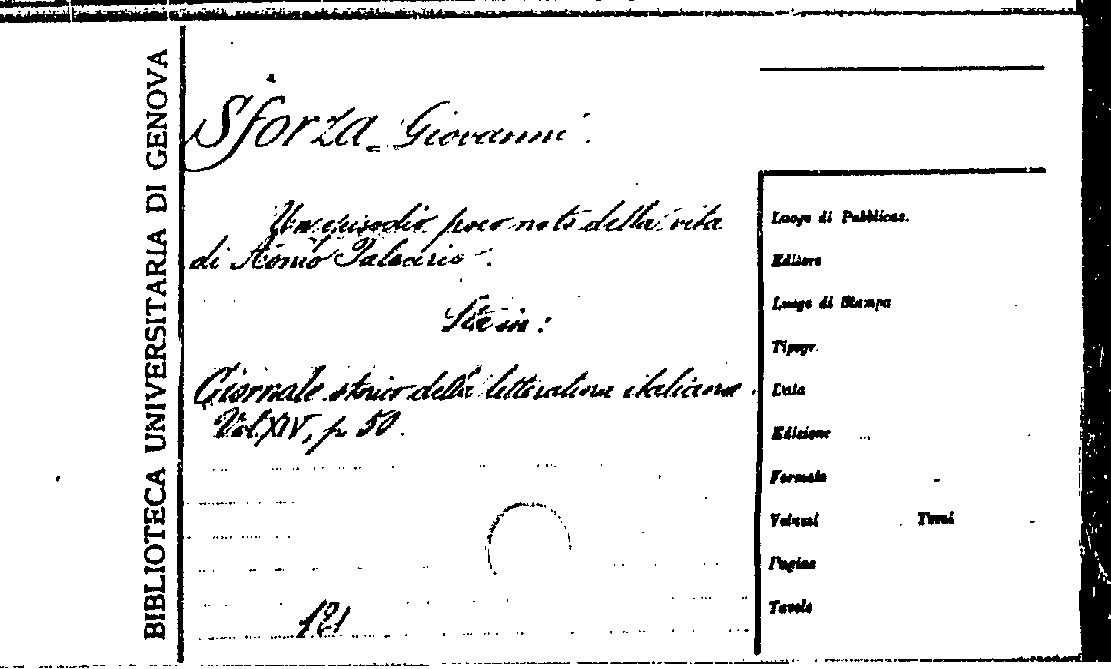 BIBLIOTECA UNIVERSITARIA DI GENOVA
Sforza Giovanni.
Un episodio poco noto della vita
di Aonio Paleario.
Sta in:
Giornale storico della letteratura italiana.
Vol. XIV, p. 50.
121
Luogo di Pubblicaz.
Editore
Luogo di Stampa
Tipogr.
Data
Edizione
Formato
Volumi Tomi
Pagine
Tavole